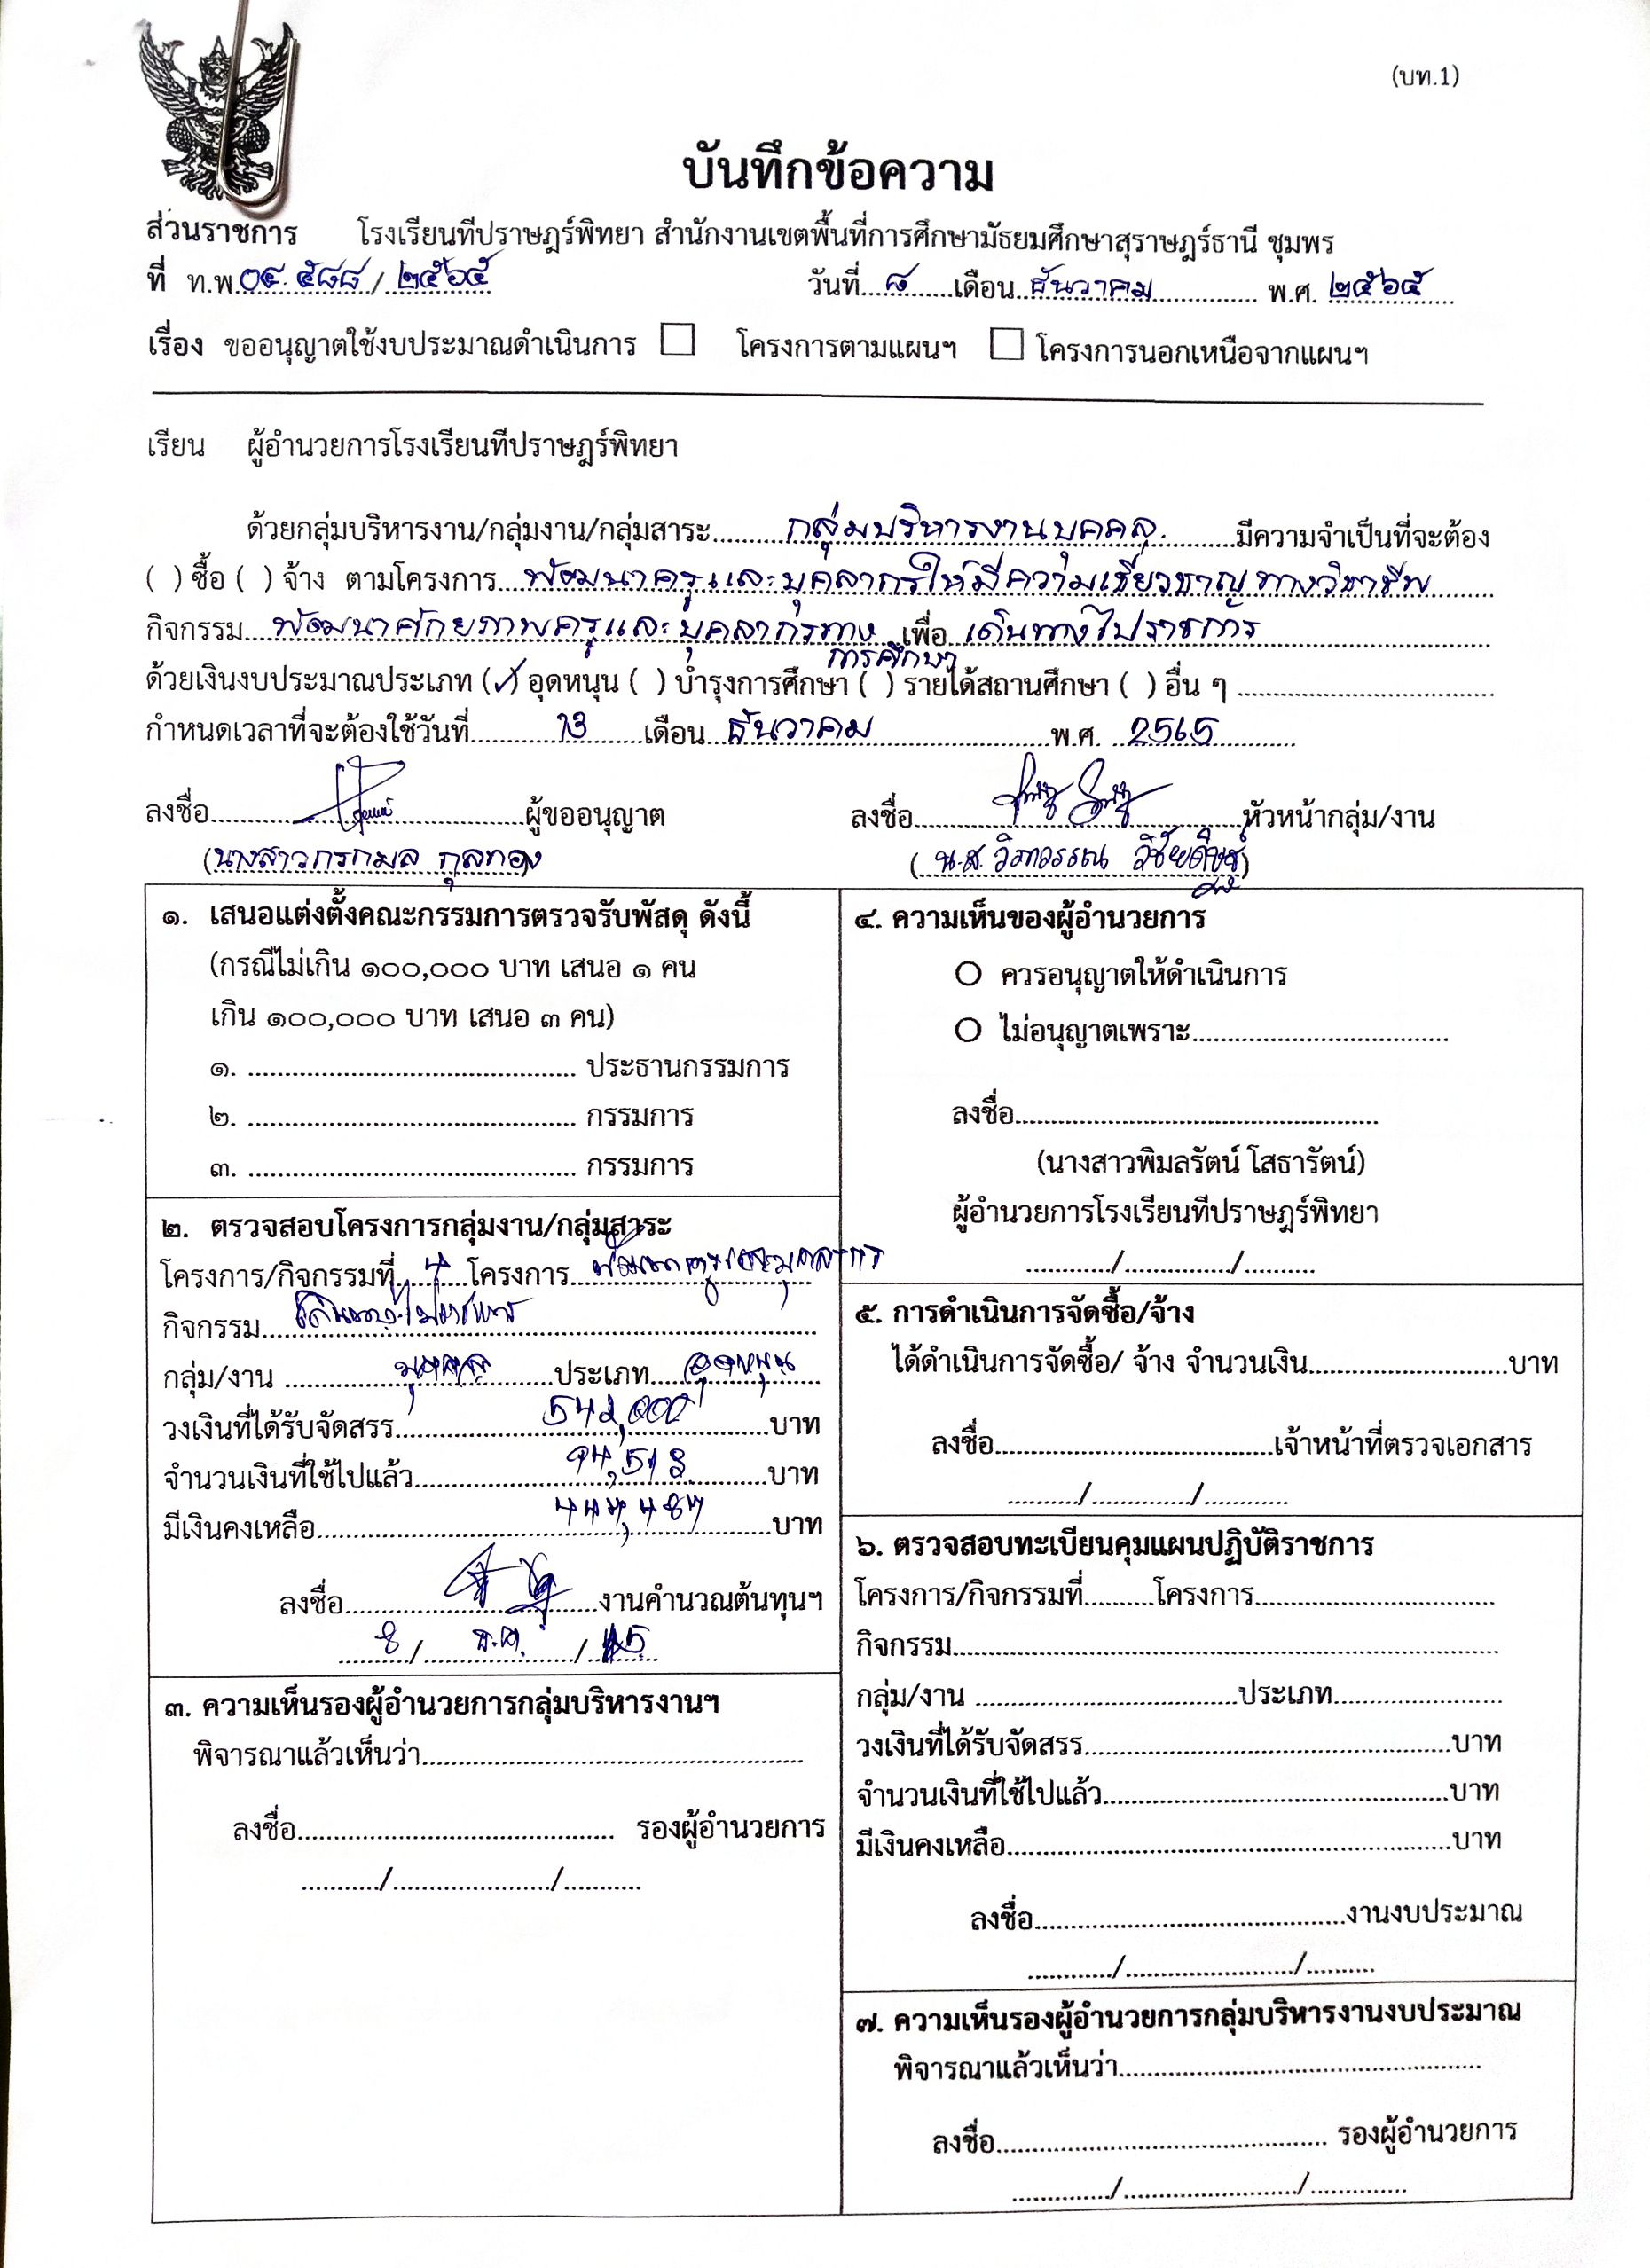 (บท.1)
บันทึกข้อความ
ส่วนราชการ โรงเรียนทีปราษฎร์พิทยา สำนักงานเขตพื้นที่การศึกษามัธยมศึกษาสุราษฎร์ธานี ชุมพร
ที่ ท.พ.๐๔.๕๘๘/๒๕๖๕ วันที่...๘...เดือน..ธันวาคม.. พ.ศ. ๒๕๖๕
เรื่อง ขออนุญาตใช้งบประมาณดำเนินการ ☐ โครงการตามแผนฯ ☐ โครงการนอกเหนือจากแผนฯ
เรียน ผู้อำนวยการโรงเรียนทีปราษฎร์พิทยา
ด้วยกลุ่มบริหารงาน/กลุ่มงาน/กลุ่มสาระ....กลุ่มบริหารงานบุคคล....มีความจำเป็นที่จะต้อง
( ) ซื้อ ( ) จ้าง ตามโครงการ...พัฒนาครูและบุคลากรให้มีความเชี่ยวชาญทางวิชาชีพ
กิจกรรม...พัฒนาศักยภาพครูและบุคลากรทาง...เพื่อ เดินทางไปราชการ
การศึกษา
ด้วยเงินงบประมาณประเภท (✓) อุดหนุน ( ) บำรุงการศึกษา ( ) รายได้สถานศึกษา ( ) อื่น ๆ ..........
กำหนดเวลาที่จะต้องใช้วันที่....13....เดือน..ธันวาคม....พ.ศ. ..2565..
ลงชื่อ..........ผู้ขออนุญาต ลงชื่อ..........หัวหน้ากลุ่ม/งาน
(นางสาวกรกมล กุลทอง) (น.ส.วิภาวรรณ)
๑. เสนอแต่งตั้งคณะกรรมการตรวจรับพัสดุ ดังนี้
(กรณีไม่เกิน ๑๐๐,๐๐๐ บาท เสนอ ๑ คน
เกิน ๑๐๐,๐๐๐ บาท เสนอ ๓ คน)
๑. .......... ประธานกรรมการ
๒. .......... กรรมการ
๓. .......... กรรมการ
๒. ตรวจสอบโครงการกลุ่มงาน/กลุ่มสาระ
โครงการ/กิจกรรมที่..4..โครงการ..พัฒนาครูและบุคลากร
กิจกรรม...เดินทางไปราชการ
กลุ่ม/งาน ....บุคคล....ประเภท...อุดหนุน
วงเงินที่ได้รับจัดสรร....542,000....บาท
จำนวนเงินที่ใช้ไปแล้ว....94,513....บาท
มีเงินคงเหลือ....447,487....บาท
ลงชื่อ..........งานคำนวณต้นทุนฯ
8 / ธ.ค. / 65
๓. ความเห็นรองผู้อำนวยการกลุ่มบริหารงานฯ
พิจารณาแล้วเห็นว่า..........
ลงชื่อ.......... รองผู้อำนวยการ
........../............../..........
๔. ความเห็นของผู้อำนวยการ
○ ควรอนุญาตให้ดำเนินการ
○ ไม่อนุญาตเพราะ..........
ลงชื่อ..........
(นางสาวพิมลรัตน์ โสธารัตน์)
ผู้อำนวยการโรงเรียนทีปราษฎร์พิทยา
........../............../..........
๕. การดำเนินการจัดซื้อ/จ้าง
ได้ดำเนินการจัดซื้อ/ จ้าง จำนวนเงิน..........บาท
ลงชื่อ..........เจ้าหน้าที่ตรวจเอกสาร
........../............../..........
๖. ตรวจสอบทะเบียนคุมแผนปฏิบัติราชการ
โครงการ/กิจกรรมที่..........โครงการ..........
กิจกรรม..........
กลุ่ม/งาน ..........ประเภท..........
วงเงินที่ได้รับจัดสรร..........บาท
จำนวนเงินที่ใช้ไปแล้ว..........บาท
มีเงินคงเหลือ..........บาท
ลงชื่อ..........งานงบประมาณ
........../............../..........
๗. ความเห็นรองผู้อำนวยการกลุ่มบริหารงานงบประมาณ
พิจารณาแล้วเห็นว่า..........
ลงชื่อ.......... รองผู้อำนวยการ
........../............../..........